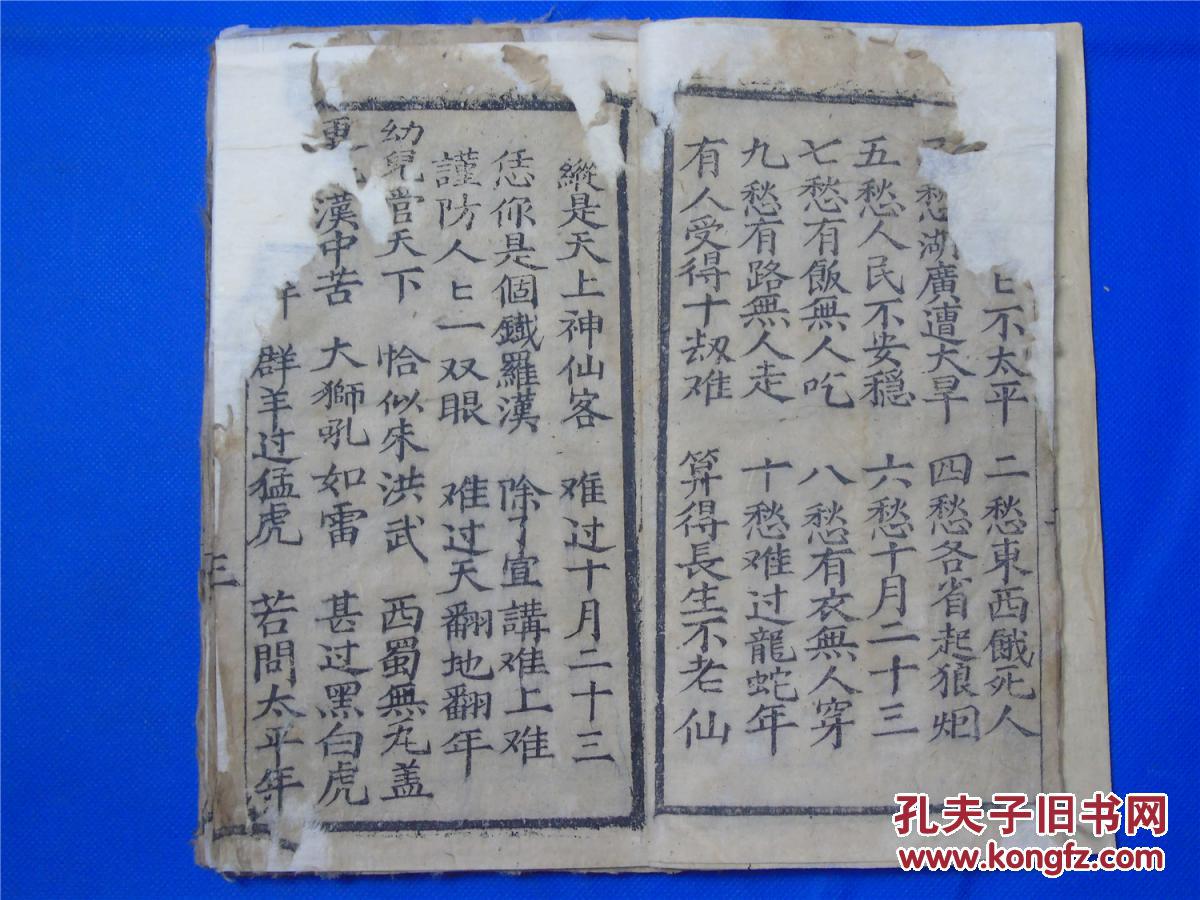 不太平 二愁東西餓死人
愁湖廣遭大旱 四愁各省起狼烟
五愁人民不安穩 六愁十月二十三
七愁有飯無人吃 八愁有衣無人穿
九愁有路無人走 十愁难过龍蛇年
有人受得十劫难 算得長生不老仙
縱是天上神仙客 难过十月二十三
恁你是個鐵羅漢 除了宣講难上难
謹防人〻一双眼 难过天翻地翻年
幼兒管天下 恰似朱洪武 西蜀無丸盖
漢中苦 大獅吼如雷 甚过黑白虎
群羊过猛虎 若問太平年
三
孔夫子旧书网
www.kongfz.com